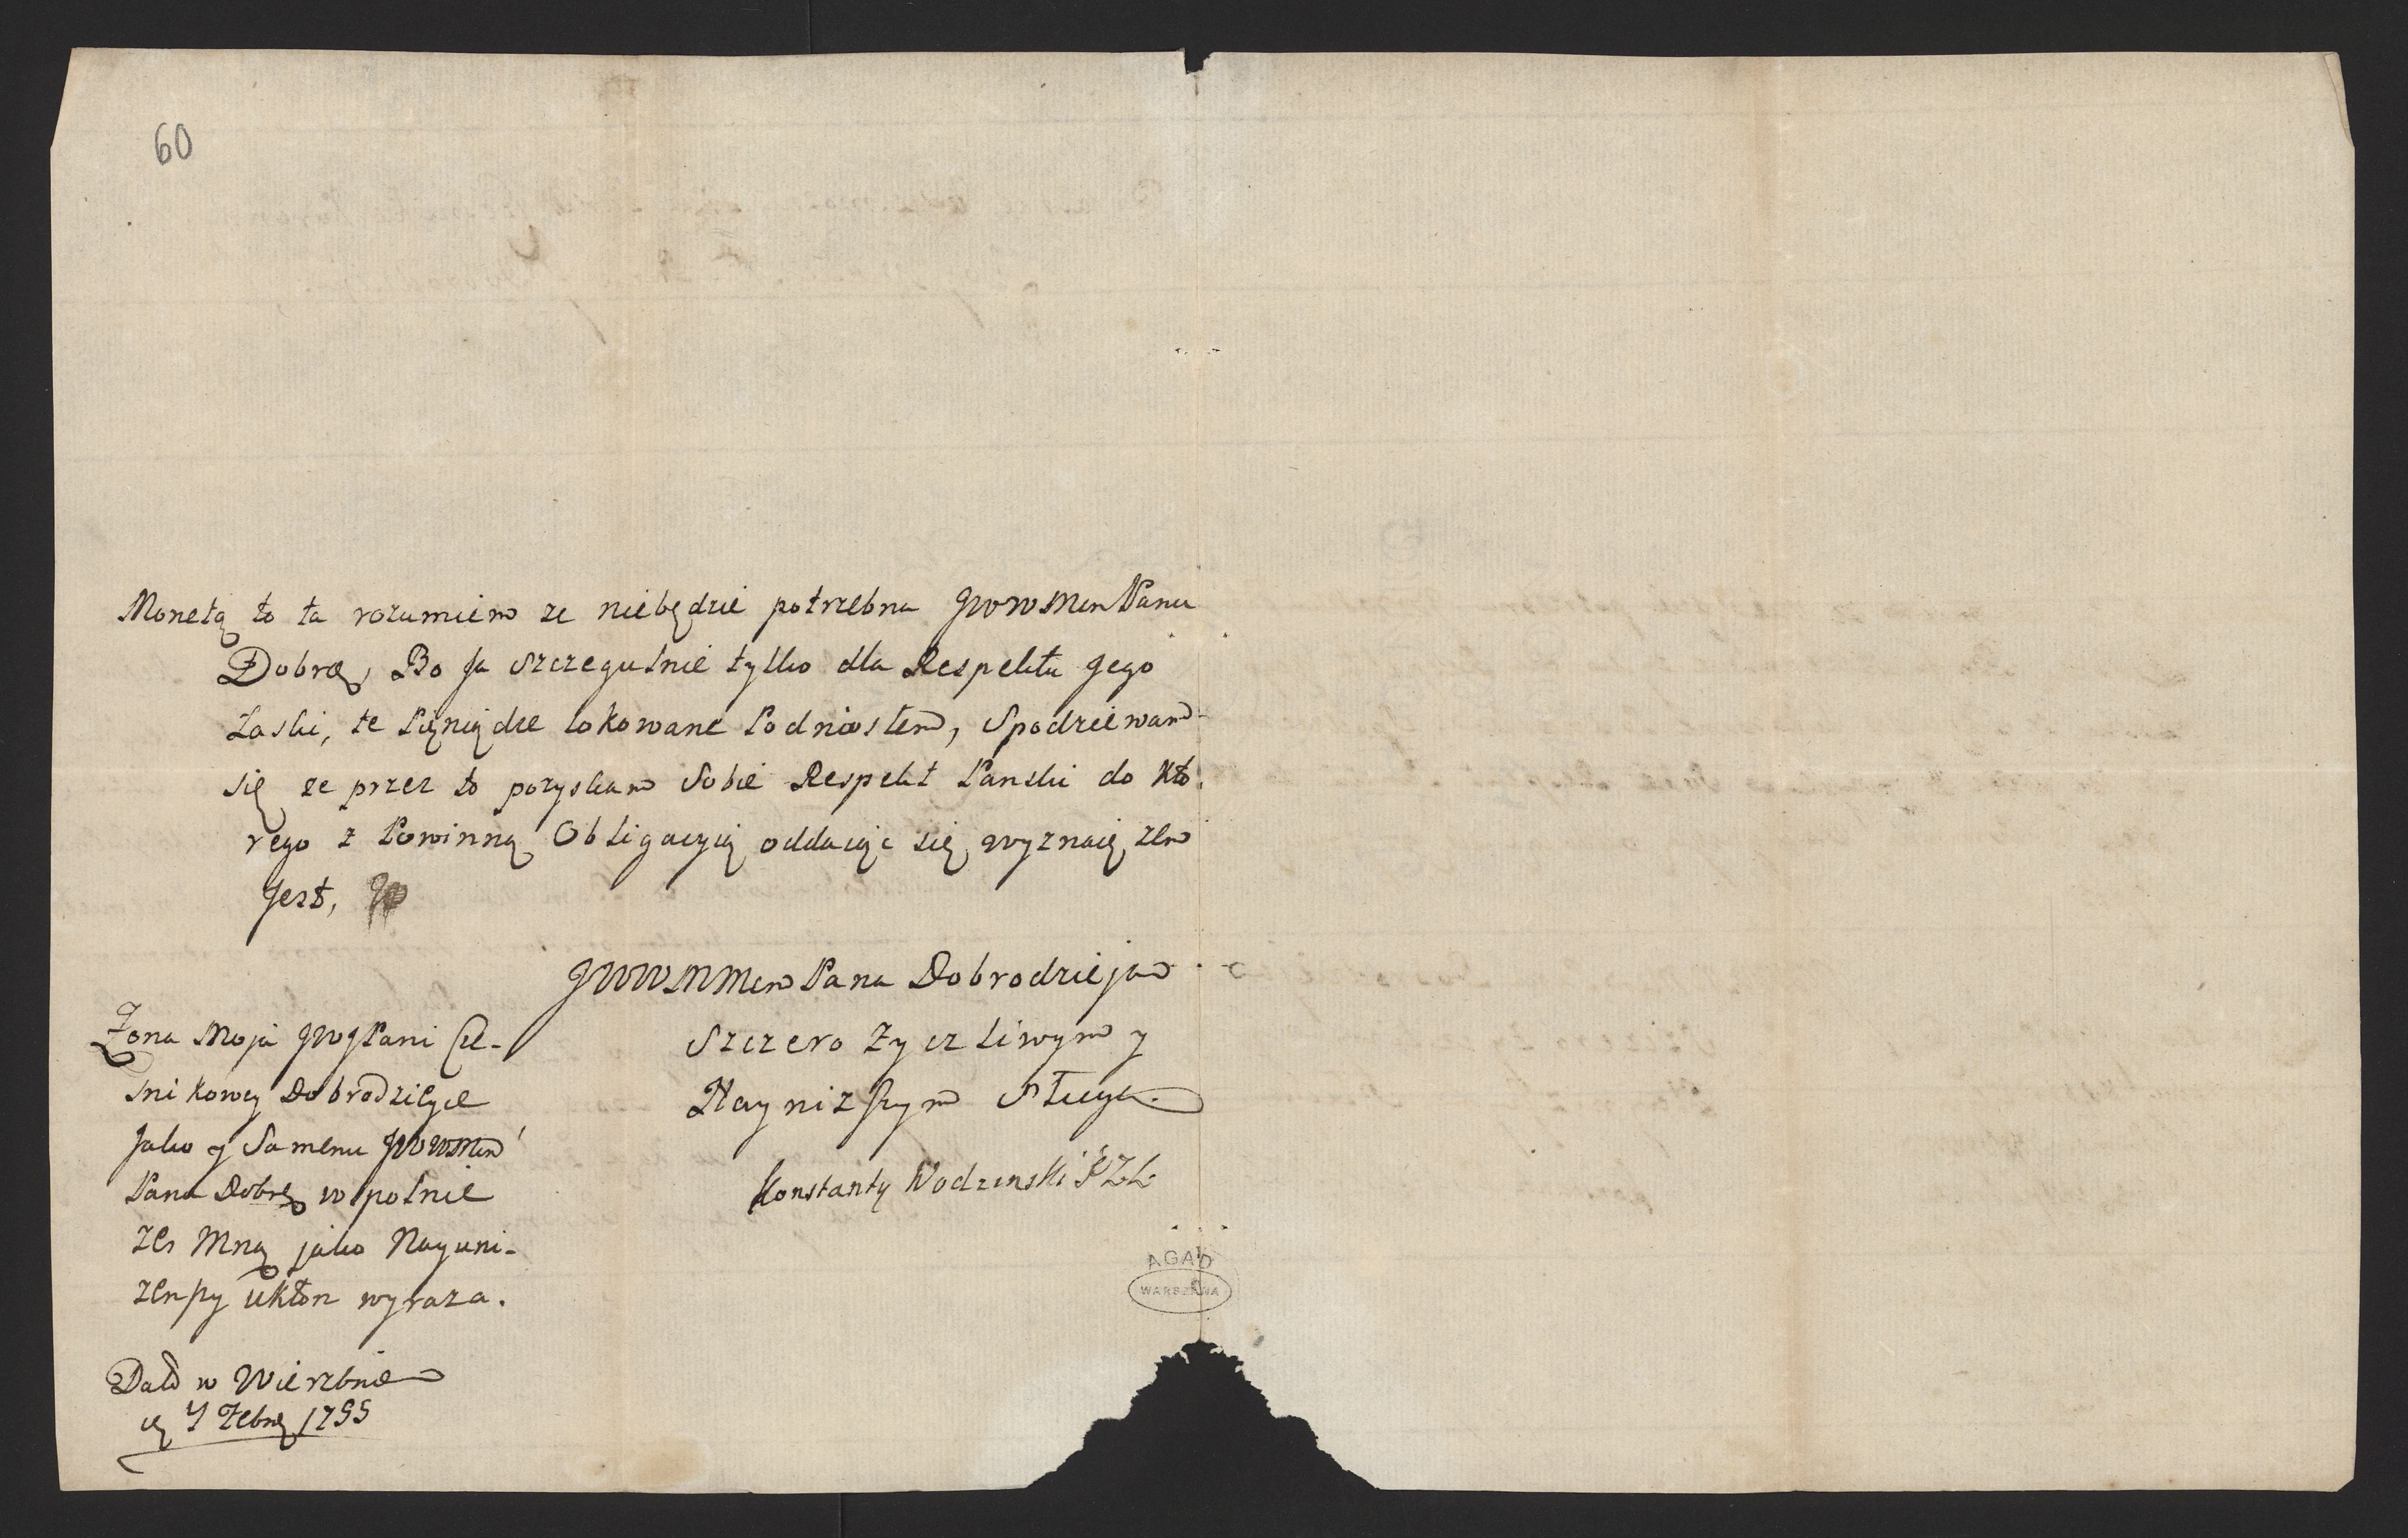 60
Monetą to ta rozumiem ze niebędzie potrzebna JWWMM Panu
Dobrę, Bo Ja szczegulnie tylko dla Respektu Jego
Łaski, te Pięniądze lokowane Podniosłem, Spodziewam
się ze przez to pozyskam Sobie Respekt Panski do Kto-
rego z Powinną Obligacyią oddaiąc się wyznaię zem
Jest,
JWWMM Pana Dobrodzieja
Szczero Zyczliwym y
Nayniższym Sługą
Konstanty Wodzinski
Żona Moja JWJPani Cze-
snikowey Dobrodzieyce
Jako y Samemu JWWMM
Panu Dobrę wspolnie
ze Mną jako Nayuni-
zenszy ukłon wyraza.
Datt w Wierzbnie
7bre 1755
AGAD
WARSZAWA